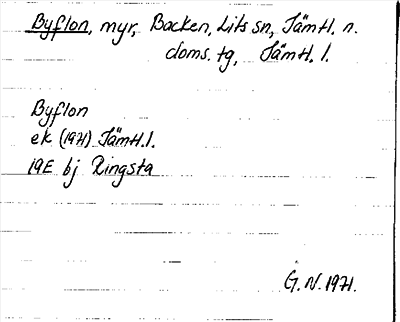 Byflon, myr, Backen, Lits sn, Jämtl. n.
doms. tg, Jämtl. l.
Byflon
ek (1971) Jämtl. l.
19E bj Ringsta
G. N. 1971.